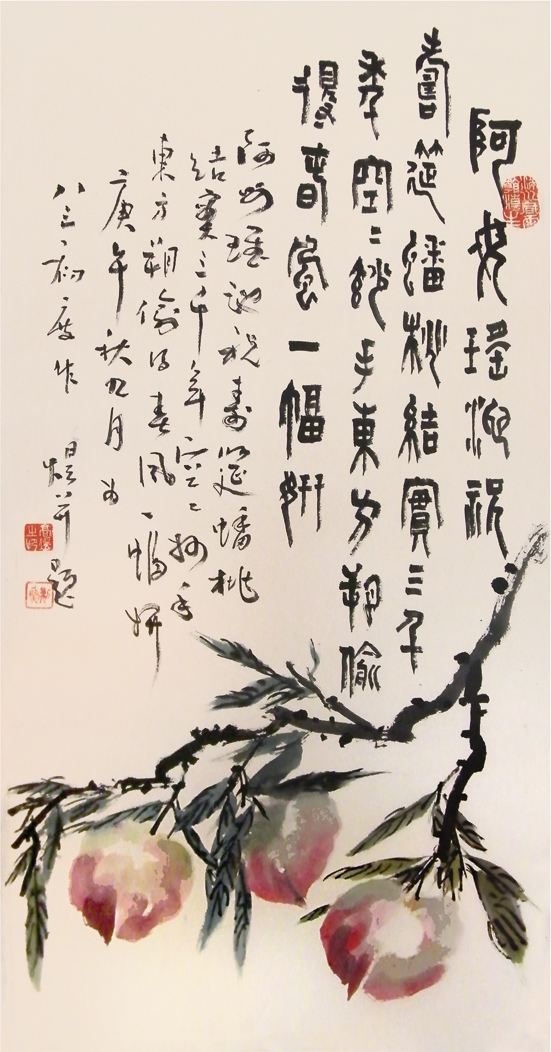 阿母瑤池祝
壽筵蟠桃結實三千
年空〻妙手東方朔偷
得春風一幅妍
阿母瑤池祝壽筵蟠桃
結實三千年空〻妙手
東方朔偷得春風一幅妍
庚午秋九月為
八三初度作 并題